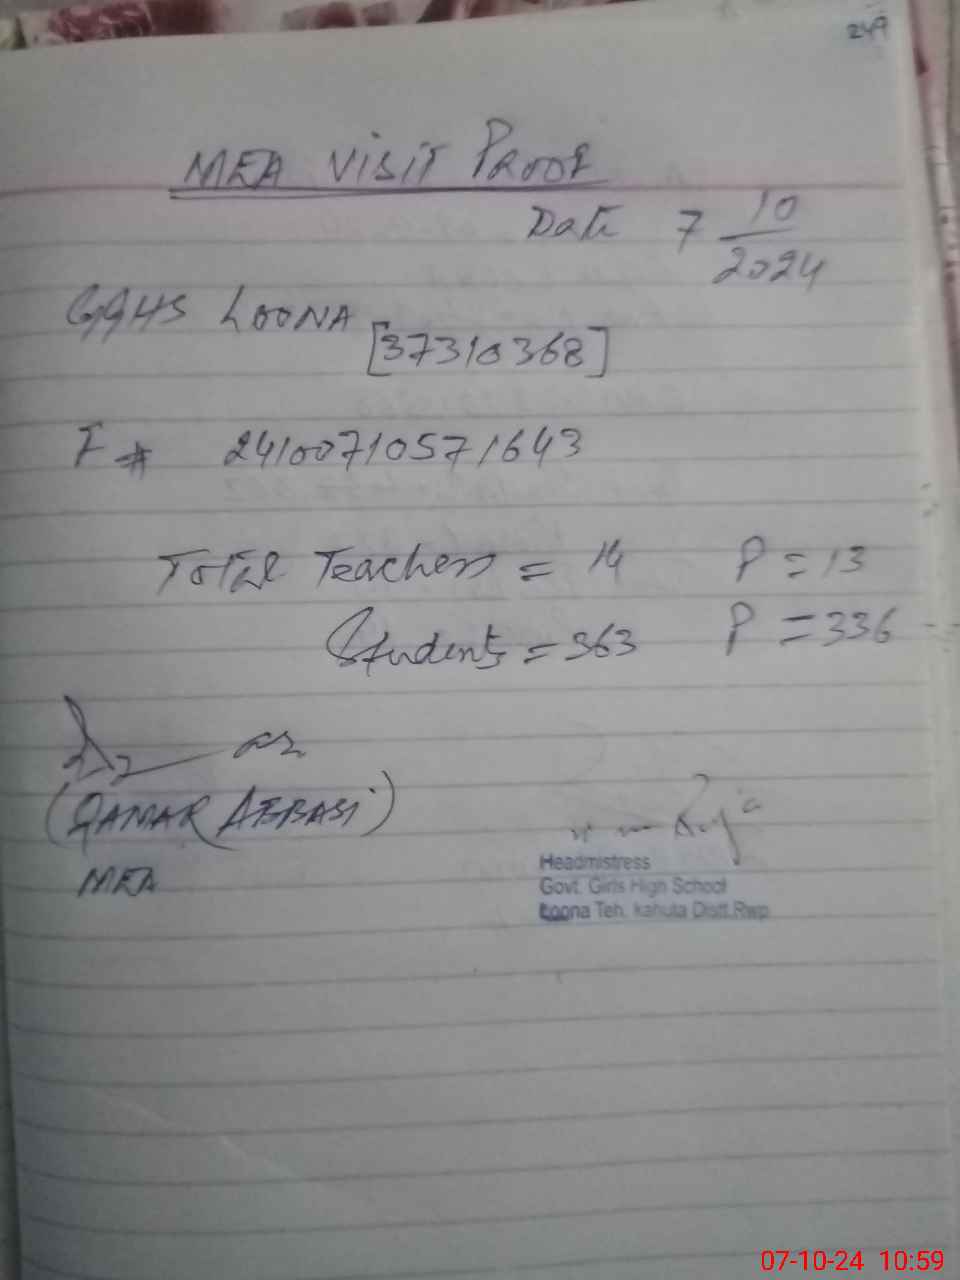 249
MEA VISIT PROOF
Date 7 10/2024
GGHS LOONA
[37310368]
F # 24100710571643
Total Teachers = 14 P = 13
Students = 363 P = 336
(QAMAR ABBASI)
MEA
Headmistress
Govt. Girls High School
Loona Teh. kahuta Distt.Rwp
07-10-24 10:59